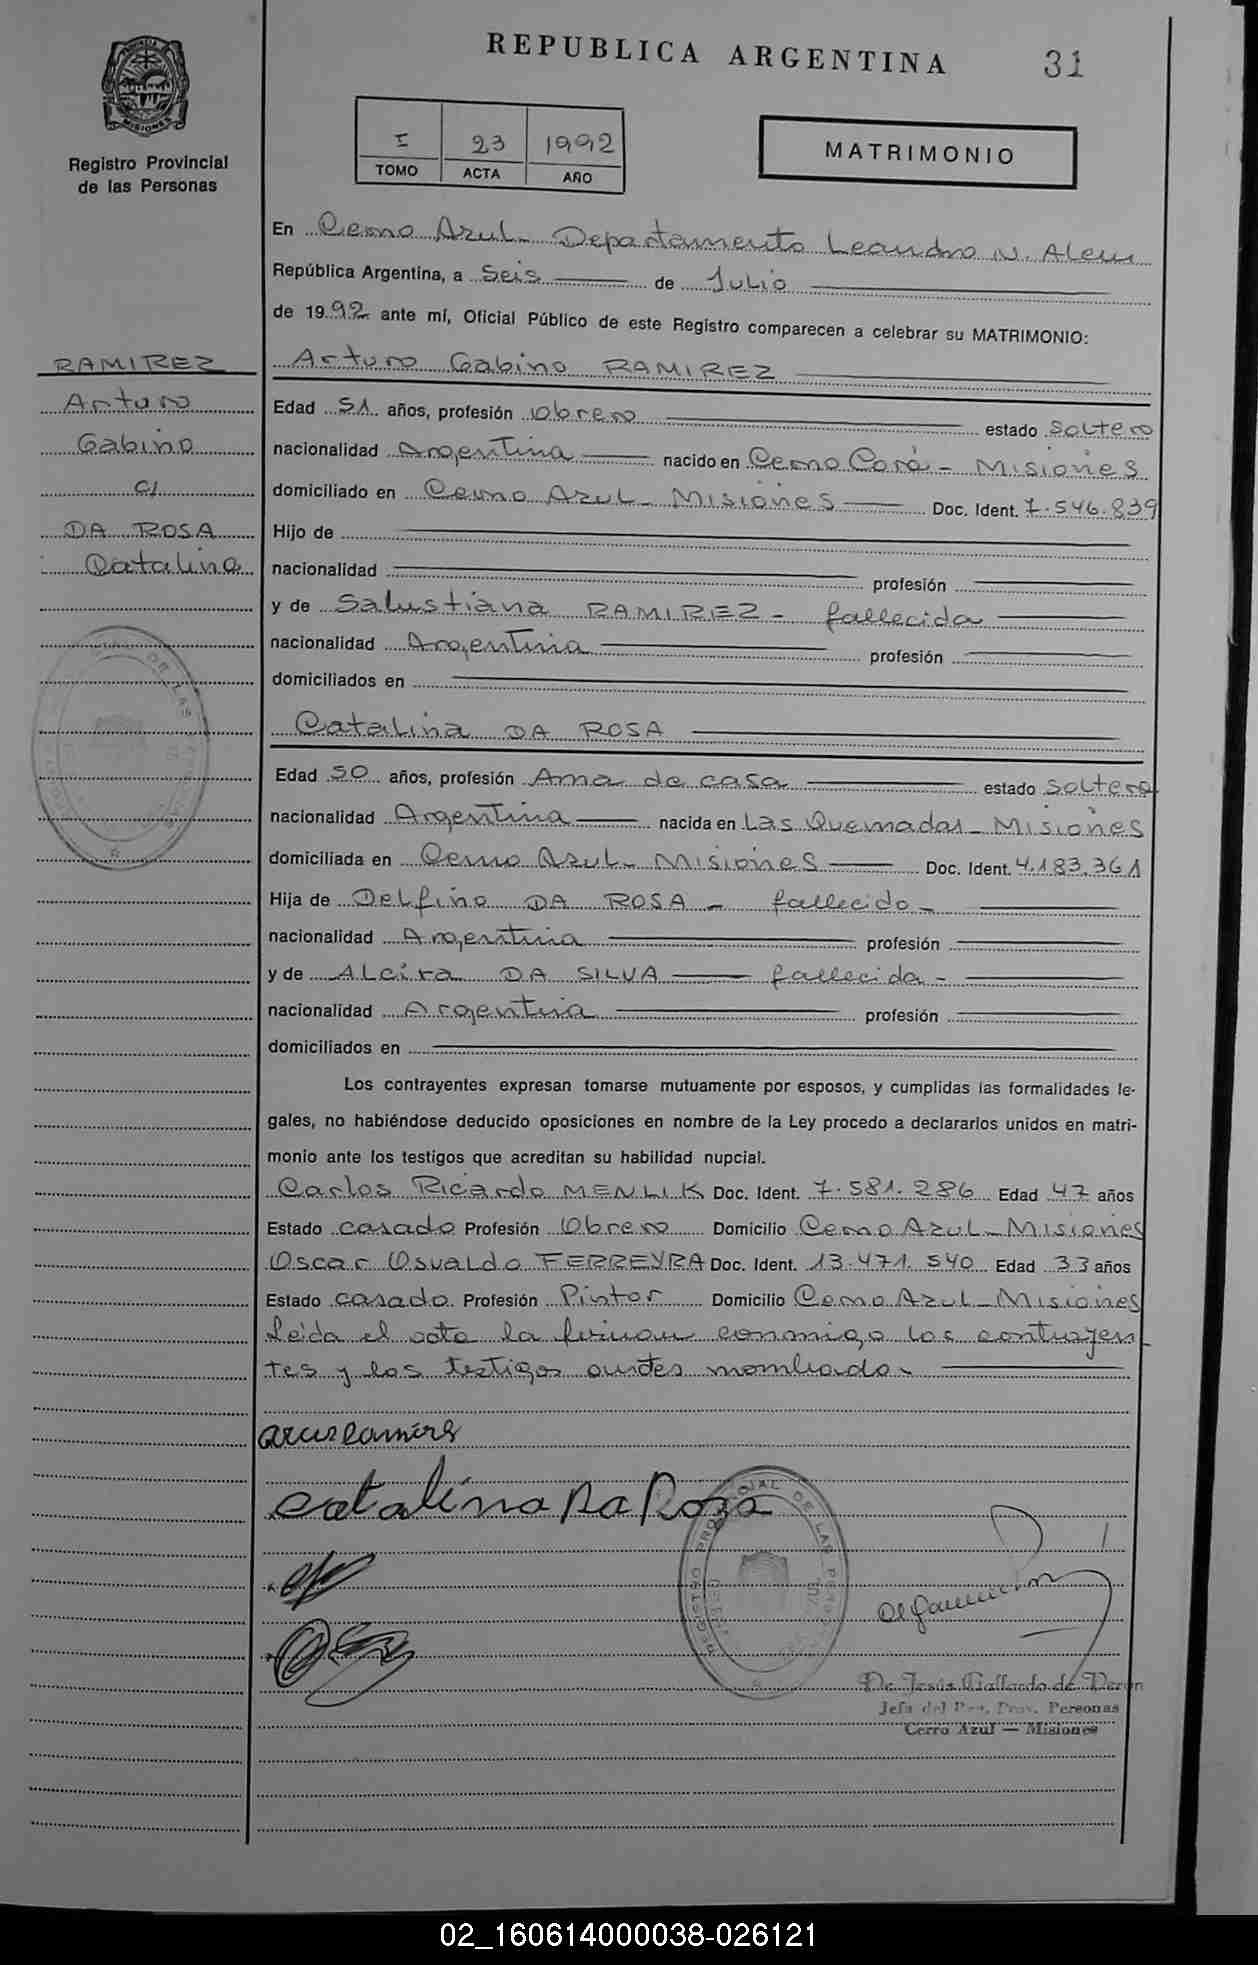 REPUBLICA ARGENTINA
31
PROVINCIA DE
MISIONES
Registro Provincial
de las Personas
I 23 1992
TOMO ACTA AÑO
MATRIMONIO
RAMIREZ
Arturo
Gabino
c/
DA ROSA
Catalina
En Cerro Azul - Departamento Leandro N. Alem
República Argentina, a Seis de Julio
de 1992 ante mí, Oficial Público de este Registro comparecen a celebrar su MATRIMONIO:
Arturo Gabino RAMIREZ
Edad 51 años, profesión Obrero estado Soltero
nacionalidad Argentina nacido en Cerro Corá - Misiones
domiciliado en Cerro Azul - Misiones Doc. Ident. 7.546.839
Hijo de
nacionalidad profesión
y de Salustiana RAMIREZ - fallecida
nacionalidad Argentina profesión
domiciliados en
Catalina DA ROSA
Edad 50 años, profesión Ama de casa estado Soltera
nacionalidad Argentina nacida en Las Quemadas - Misiones
domiciliada en Cerro Azul - Misiones Doc. Ident. 4.183.361
Hija de Delfino DA ROSA - fallecido -
nacionalidad Argentina profesión
y de Alcira DA SILVA fallecida -
nacionalidad Argentina profesión
domiciliados en
Los contrayentes expresan tomarse mutuamente por esposos, y cumplidas las formalidades le-
gales, no habiéndose deducido oposiciones en nombre de la Ley procedo a declararlos unidos en matri-
monio ante los testigos que acreditan su habilidad nupcial.
Carlos Ricardo MENLIK Doc. Ident. 7.581.286 Edad 47 años
Estado casado Profesión Obrero Domicilio Cerro Azul - Misiones
Oscar Osvaldo FERREYRA Doc. Ident. 13.471.540 Edad 33 años
Estado casado Profesión Pintor Domicilio Cerro Azul - Misiones
Leida el acta la firman conmigo los contrayen-
tes y los testigos antes nombrado -
Catalina Da Rosa
REGISTRO PROVINCIAL DE LAS PERSONAS
De Jesús Gallardo de Peron
Jefa del Reg. Prov. Personas
Cerro Azul — Misiones
02_160614000038-026121